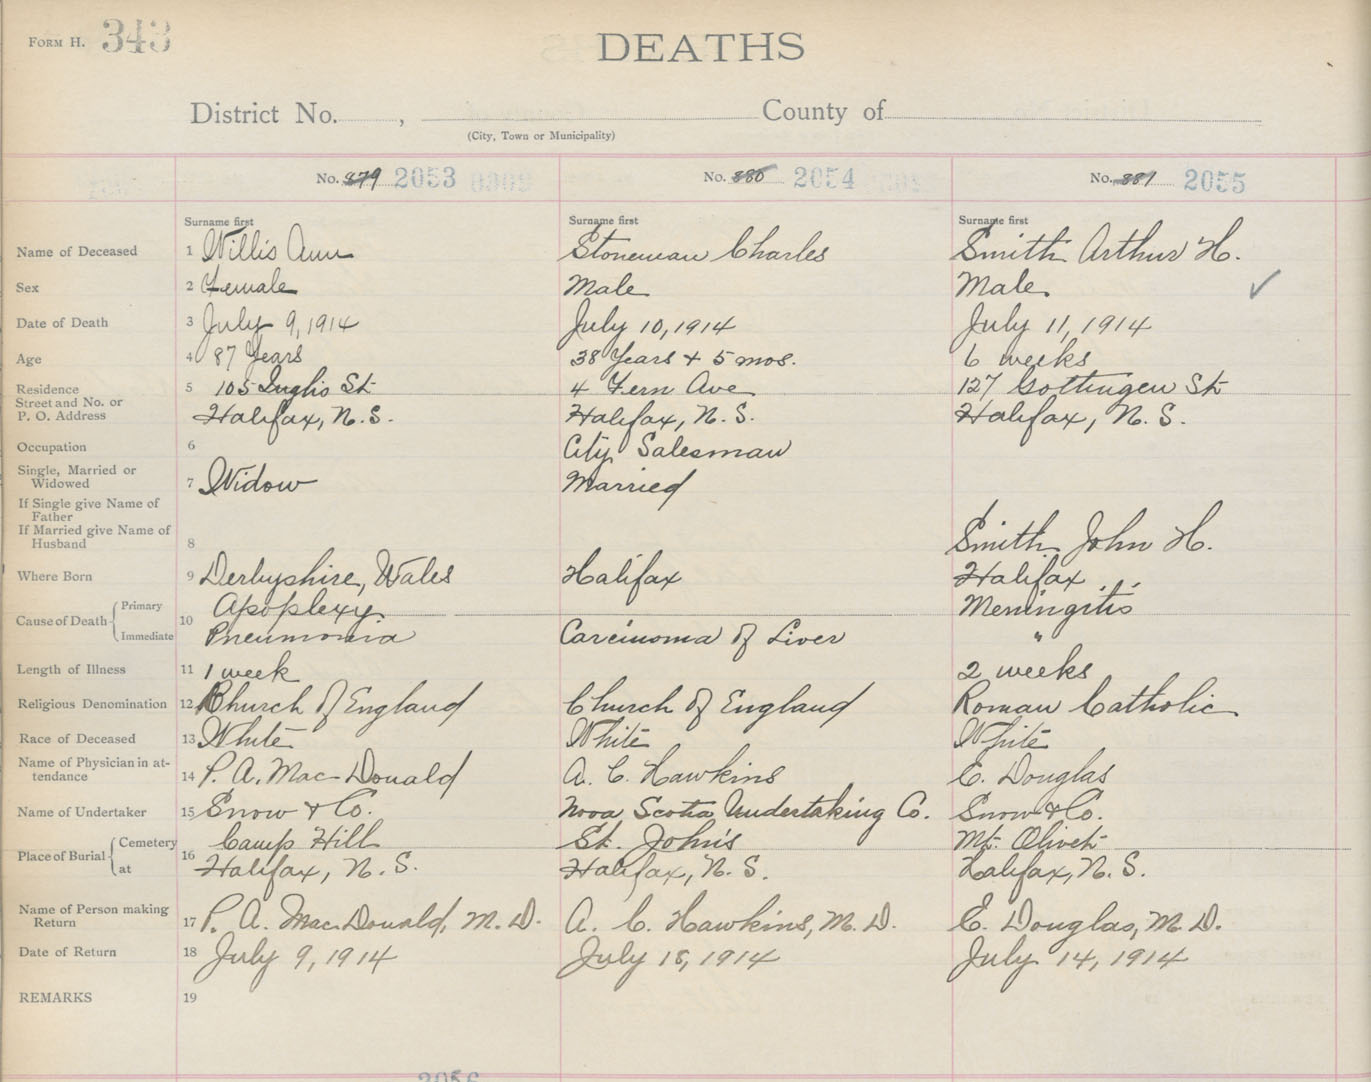 FORM H. 343
DEATHS
District No. , County of
(City, Town or Municipality)
No. 879 2053 No. 880 2054 No. 881 2055
Surname first Surname first Surname first
Name of Deceased 1 Willis Ann Stoneman Charles Smith Arthur H.
Sex 2 Female Male Male ✓
Date of Death 3 July 9, 1914 July 10, 1914 July 11, 1914
Age 4 87 Years 38 Years + 5 mos. 6 weeks
Residence 5 105 St. 4 Fern Ave 127 Gottingen St
Street and No. or
P. O. Address Halifax, N.S. Halifax, N.S. Halifax, N.S.
Occupation 6 City Salesman
Single, Married or
Widowed 7 Widow Married
If Single give Name of
Father
If Married give Name of
Husband 8 Smith John H.
Where Born 9 Derbyshire, Wales Halifax Halifax
Cause of Death Primary 10 Apoplexy Meningitis
Immediate Pneumonia Carcinoma of Liver "
Length of Illness 11 1 week 2 weeks
Religious Denomination 12 Church of England Church of England Roman Catholic
Race of Deceased 13 White White White
Name of Physician in at-
tendance 14 P. A. MacDonald A. C. Hawkins E. Douglas
Name of Undertaker 15 Snow & Co. Nova Scotia Undertaking Co. Snow & Co.
Place of Burial Cemetery 16 Camp Hill St. John's Mt. Olivet
at Halifax, N.S. Halifax, N.S. Halifax, N.S.
Name of Person making
Return 17 P. A. MacDonald, M.D. A. C. Hawkins, M.D. E. Douglas, M.D.
Date of Return 18 July 9, 1914 July 18, 1914 July 14, 1914
REMARKS 19
2056